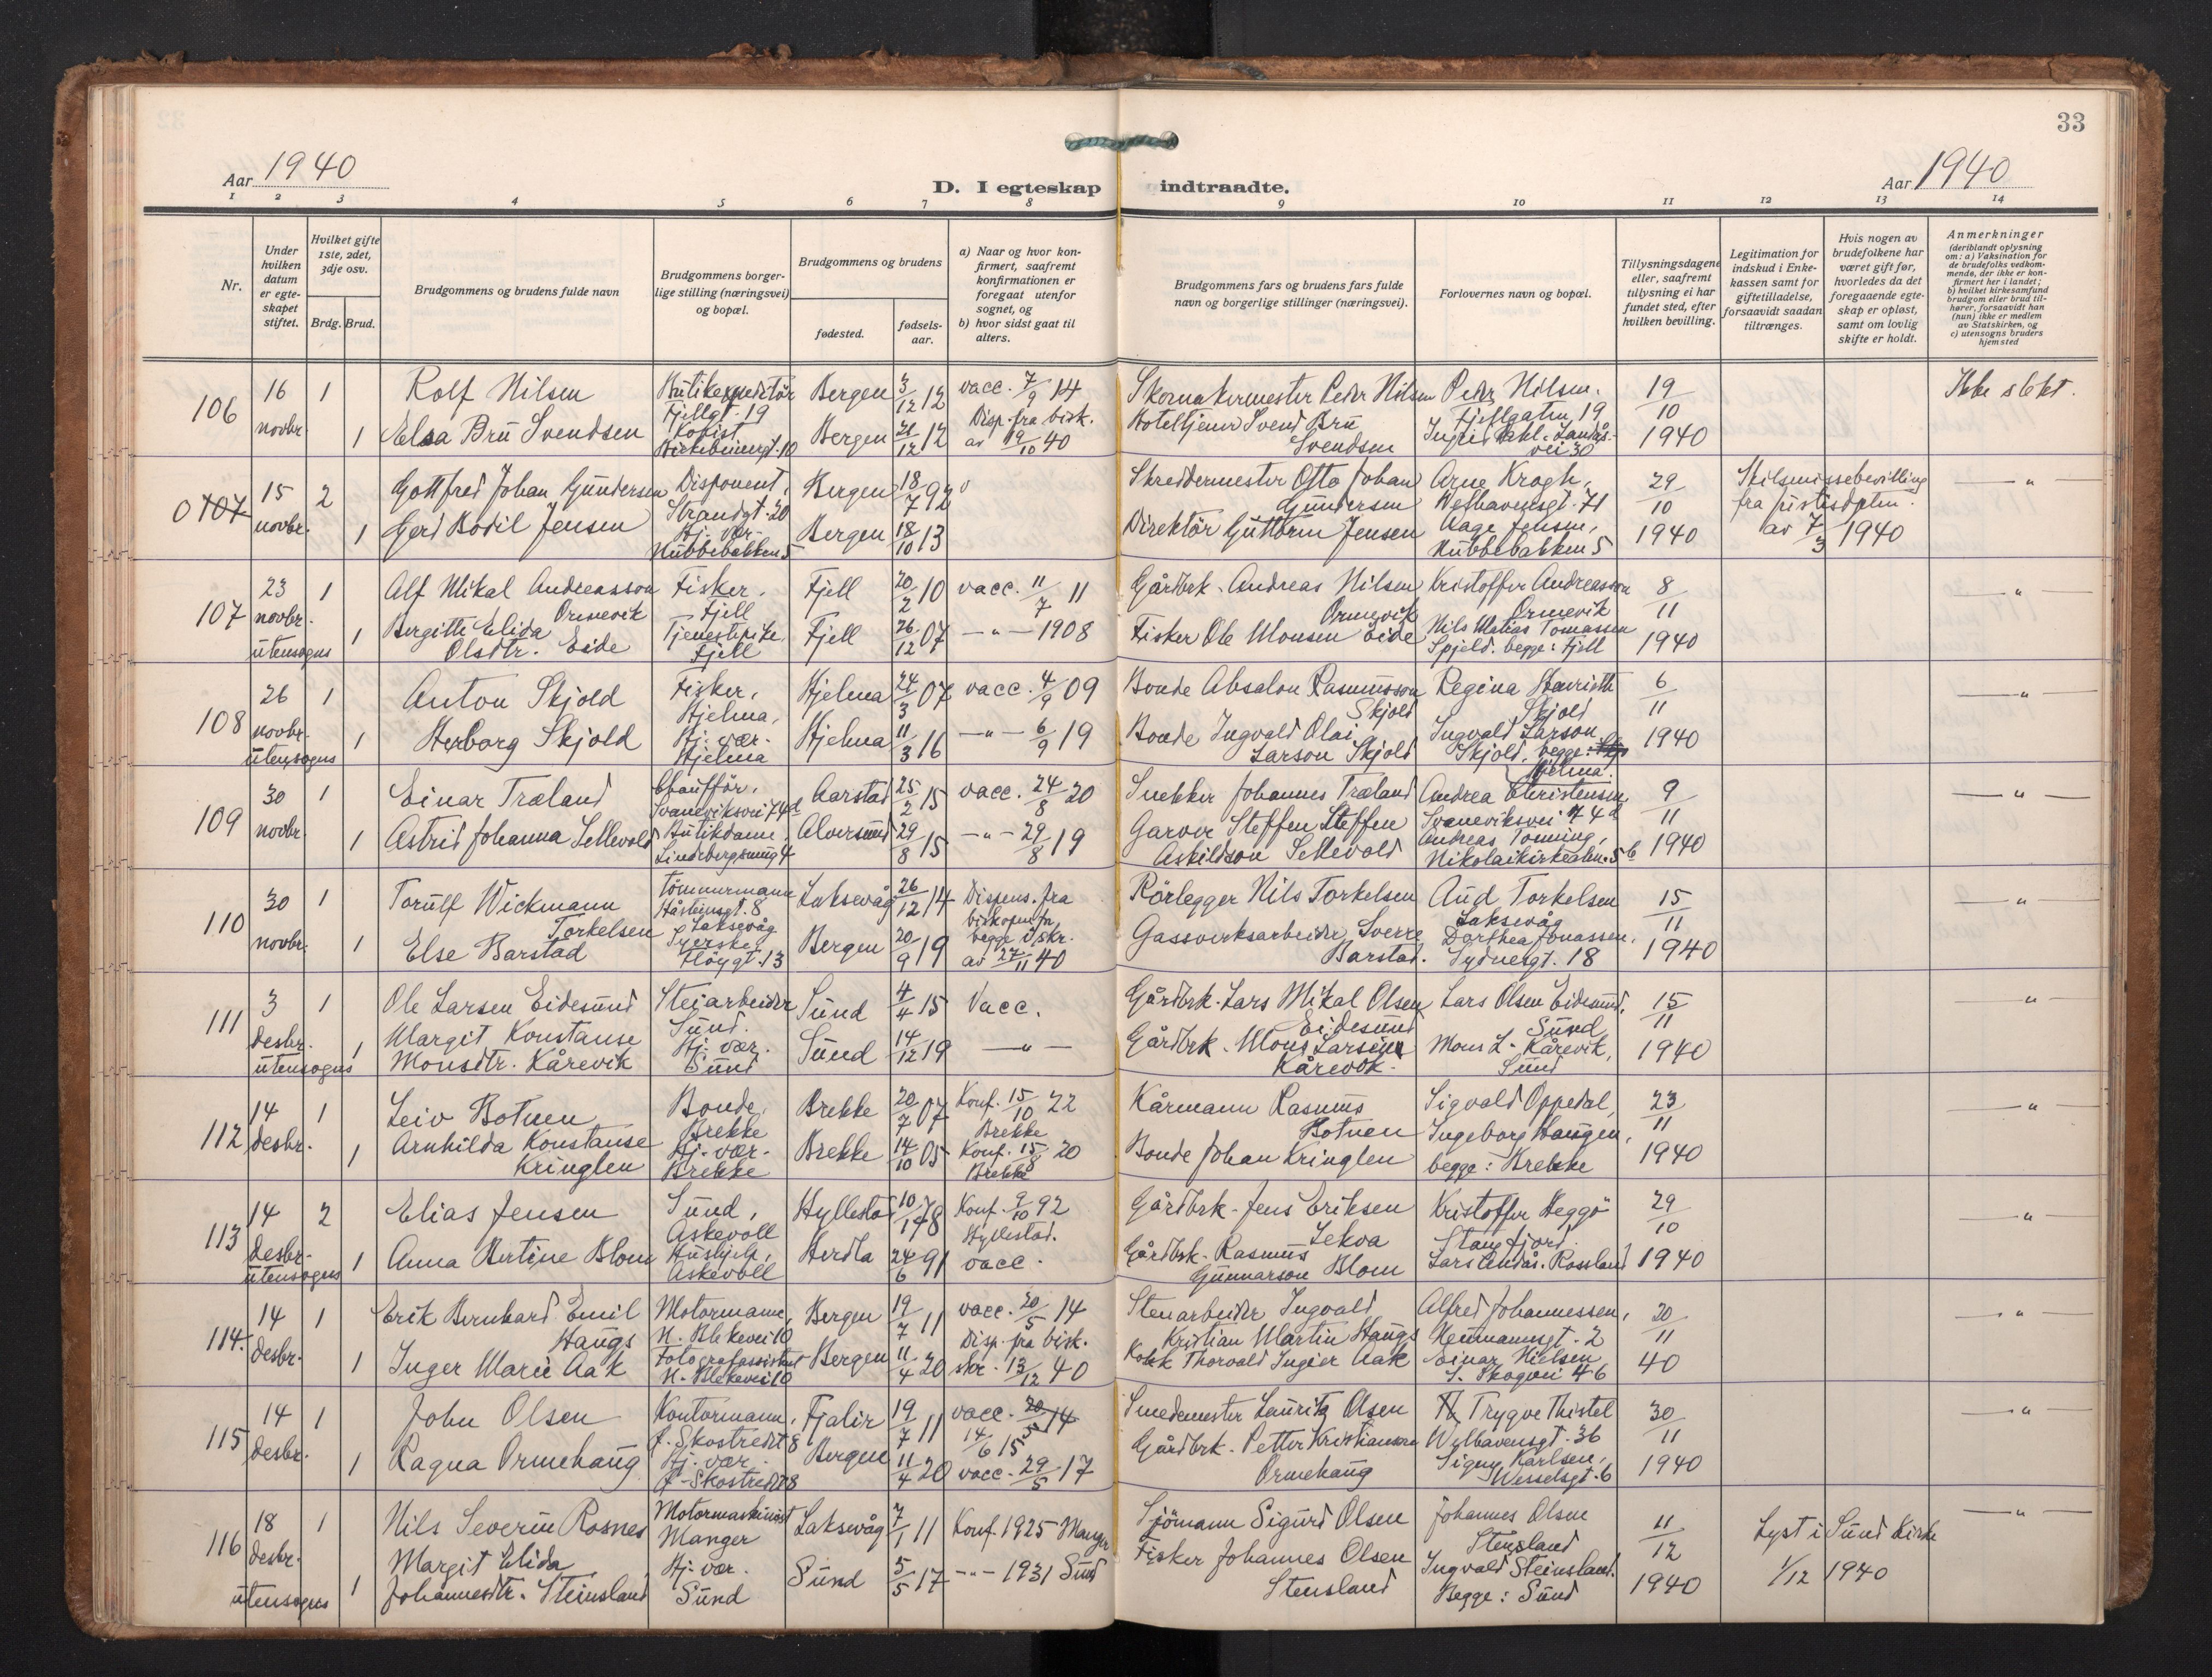 33
Aar 1940
D. I egteskap indtraadte.
Aar 1940
1 2 3 4 5 6 7 8 9 10 11 12 13 14
Nr.
Under hvilken datum er egteskapet stiftet.
Hvilket gifte 1ste, 2det, 3dje osv.
Brdg. Brud.
Brudgommens og brudens fulde navn
Brudgommens borgerlige stilling (næringsvei) og bopæl.
Brudgommens og brudens
fødested.
fødselsaar.
a) Naar og hvor konfirmert, saafremt konfirmationen er foregaat utenfor sognet, og
b) hvor sidst gaat til alters.
Brudgommens fars og brudens fars fulde navn og borgerlige stillinger (næringsvei).
Forlovernes navn og bopæl.
Tillysningsdagene eller, saafremt tillysning ei har fundet sted, efter hvilken bevilling.
Legitimation for indskud i Enkekassen samt for giftetilladelse, forsaavidt saadan tiltrænges.
Hvis nogen av brudefolkene har været gift før, hvorledes da det foregaaende egteskap er opløst, samt om lovlig skifte er holdt.
Anmerkninger
(deriblandt oplysning om: a) Vaksination for de brudefolks vedkommende, der ikke er konfirmert her i landet; b) hvilket kirkesamfund brudgom eller brud tilhører, forsaavidt han (hun) ikke er medlem av Statskirken, og c) utensogns bruders hjemsted
106 16 novbr. 1 Rolf Nilsen Fjellgt. 19 Bergen 3/12 12 vacc. 7/9 14 Skomakermester Peder Nilsen Peder Nilsen. Fjellgaten 19 19/10 1940 Ikke slekt.
1 Elsa Brü Svendsen Kopist Bergen 21/12 12 Disp. fra bisk. av 19/10 40 Svend Brü Svendsen
0107 15 novbr. 2 Gottfred Johan Gündersen Disponent, Strandgt. 20 Bergen 18/7 92 Skreddermester Otto Johan Gündersen Arne Krogh, Welhavensgt. 71 29/10 1940 Skilsmissebevilling fra justisdptm. av 7/3 1940 — " —
1 Gerd Bodil Jensen Hj. vær. Nübbebakken 5 Bergen 18/10 13 Direktör Güttorm Jensen Aage Jensen, Nübbebakken 5
107 23 novbr. utensogns 1 Alf Mikal Andreasson Ormevik Fisker, Fjell Fjell 20/2 10 vacc. 11/7 11 Gårdbrk. Andreas Nilsen Ormevik Kristoffer Andreasson Ormevik 8/11 1940 — " —
1 Bergitte Elida Olsdtr. Eide Tjenestepike, Fjell Fjell 26/12 07 — " — 1908 Fisker Ole Monsen Eide Nils Matias Tomassen Spjeld. begge: Fjell
108 26 novbr. utensogns 1 Anton Skjold Fisker, Hjelma, Hjelma 24/3 07 vacc. 4/9 09 Bonde Absalon Rasmüsson Skjold Regina Skjold 6/11 1940 — " —
1 Herborg Skjold Hj. vær. Hjelma Hjelma 11/3 16 — " — 6/9 19 Bonde Ingvald Olai Larson Skjold Ingvald Larson Skjold, begge: Hjelma.
109 30 novbr. 1 Einar Træland Chaufför, Svaneviksvei 74d Aarstad 25/2 15 vacc. 24/8 20 Snekker Johannes Træland Andrea Christensen, Svaneviksvei 74d 9/11 1940 — " —
1 Astrid Johanna Sellevold Bütikdame, Alversünd 29/8 15 — " — 29/8 19 Garver Steffen Steffen Askildson Sellevold Andreas Tonning, Nikolaikirkealm. 5b
110 30 novbr. 1 Torülf Wickmann Torkelsen Tömmermann Håsteinsgt. 8 Laksevåg Laksevåg 26/12 14 Dispens. fra biskopen for begge i skr. av 27/11 40 Rörlegger Nils Torkelsen Aüd Torkelsen Laksevåg 15/11 1940 — " —
1 Else Barstad Syerske, Fløygt. 13 Bergen 20/9 19 Gassverksarbeider Sverre Barstad. Dorthea Jonassen, Sydnesgt. 18
111 3 desbr. utensogns 1 Ole Larsen Eidesünd Steiarbeider Sünd. Sünd 4/4 15 Vacc. Gårdbrk. Lars Mikal Olsen Eidesünd Lars Olsen Eidesünd, Sünd 15/11 1940 — " —
1 Margit Konstanse Monsdtr. Kårevik Hj. vær. Sünd Sünd 14/12 19 — " — Gårdbrk. Mons Larsen Kårevik. Mons L. Kårevik, Sünd
112 14 desbr. 1 Leiv Botnen Bonde, Brekke Brekke 20/7 07 Konf. 15/10 22 Brekke Kårmann Rasmüs Botnen Sigvald Oppedal, 23/11 1940 — " —
1 Arnhilda Konstanse Kringlen Hj. vær. Brekke Brekke 14/10 05 Konf. 15/8 20 Brekke Bonde Johan Kringlen Ingeborg Haügen, begge: Brekke
113 14 desbr. utensogns 2 Elias Jensen Sünd, Askevoll Hyllestad 10/1 78 Konf. 9/10 92 Hyllestad. Gårdbrk. Jens Eriksen Lekva Kristoffer Heggö Stangfjord. 29/10 1940 — " —
1 Anna Bertine Blom Hüshjelp, Askevoll Herdla 24/6 91 vacc. Gårdbrk. Rasmüs Günnarson Blom Lars Rossland
114. 14 desbr. 1 Erik Bernhard Emil Haügs Motormann, N. Blekevei 10 Bergen 19/7 11 vacc. 20/5 14 Stenarbeider Ingvald Kristian Martin Haügs Alfred Johannessen, Neümannsgt. 2 20/11 40 — " —
1 Inger Marie Aak Fotografassistent N. Blekevei 10 Bergen 11/4 20 Disp. fra bisk. skr. 13/12 40 Kokk Thorvald Ingier Aak Einar Nielsen S. Skogvei 46
115 14 desbr. 1 John Olsen Kontormann, Ö. Skostredet 8 Fjalir 19/7 11 vacc. 20/5 14 14/6 15 Smedemester Laüritz Olsen Trygve Thistel Welhavensgt. 36 30/11 1940 — " —
1 Ragna Ormehaüg Hj. vær. Ö. Skostredet 8 Bergen 11/4 20 vacc. 29/5 17 Gårdbrk. Petter Kristiansen Ormehaüg Signy Karlsen, Wesselsgt. 6
116 18 desbr. utensogns 1 Nils Severin Rosnes Motormaskinist Manger Laksevåg 7/1 11 Konf. 1925 Manger Sjömann Sigürd Olsen Johannes Olsen Stensland 11/12 1940 Lyst i Sünd Kirke 1/12 1940 — " —
1 Margit Elida Johannesdtr. Steinsland Hj. vær. Sünd Sünd 5/5 17 — " — 1931 Sünd Fisker Johannes Olsen Stensland Ingvald Steinsland. Begge: Sünd